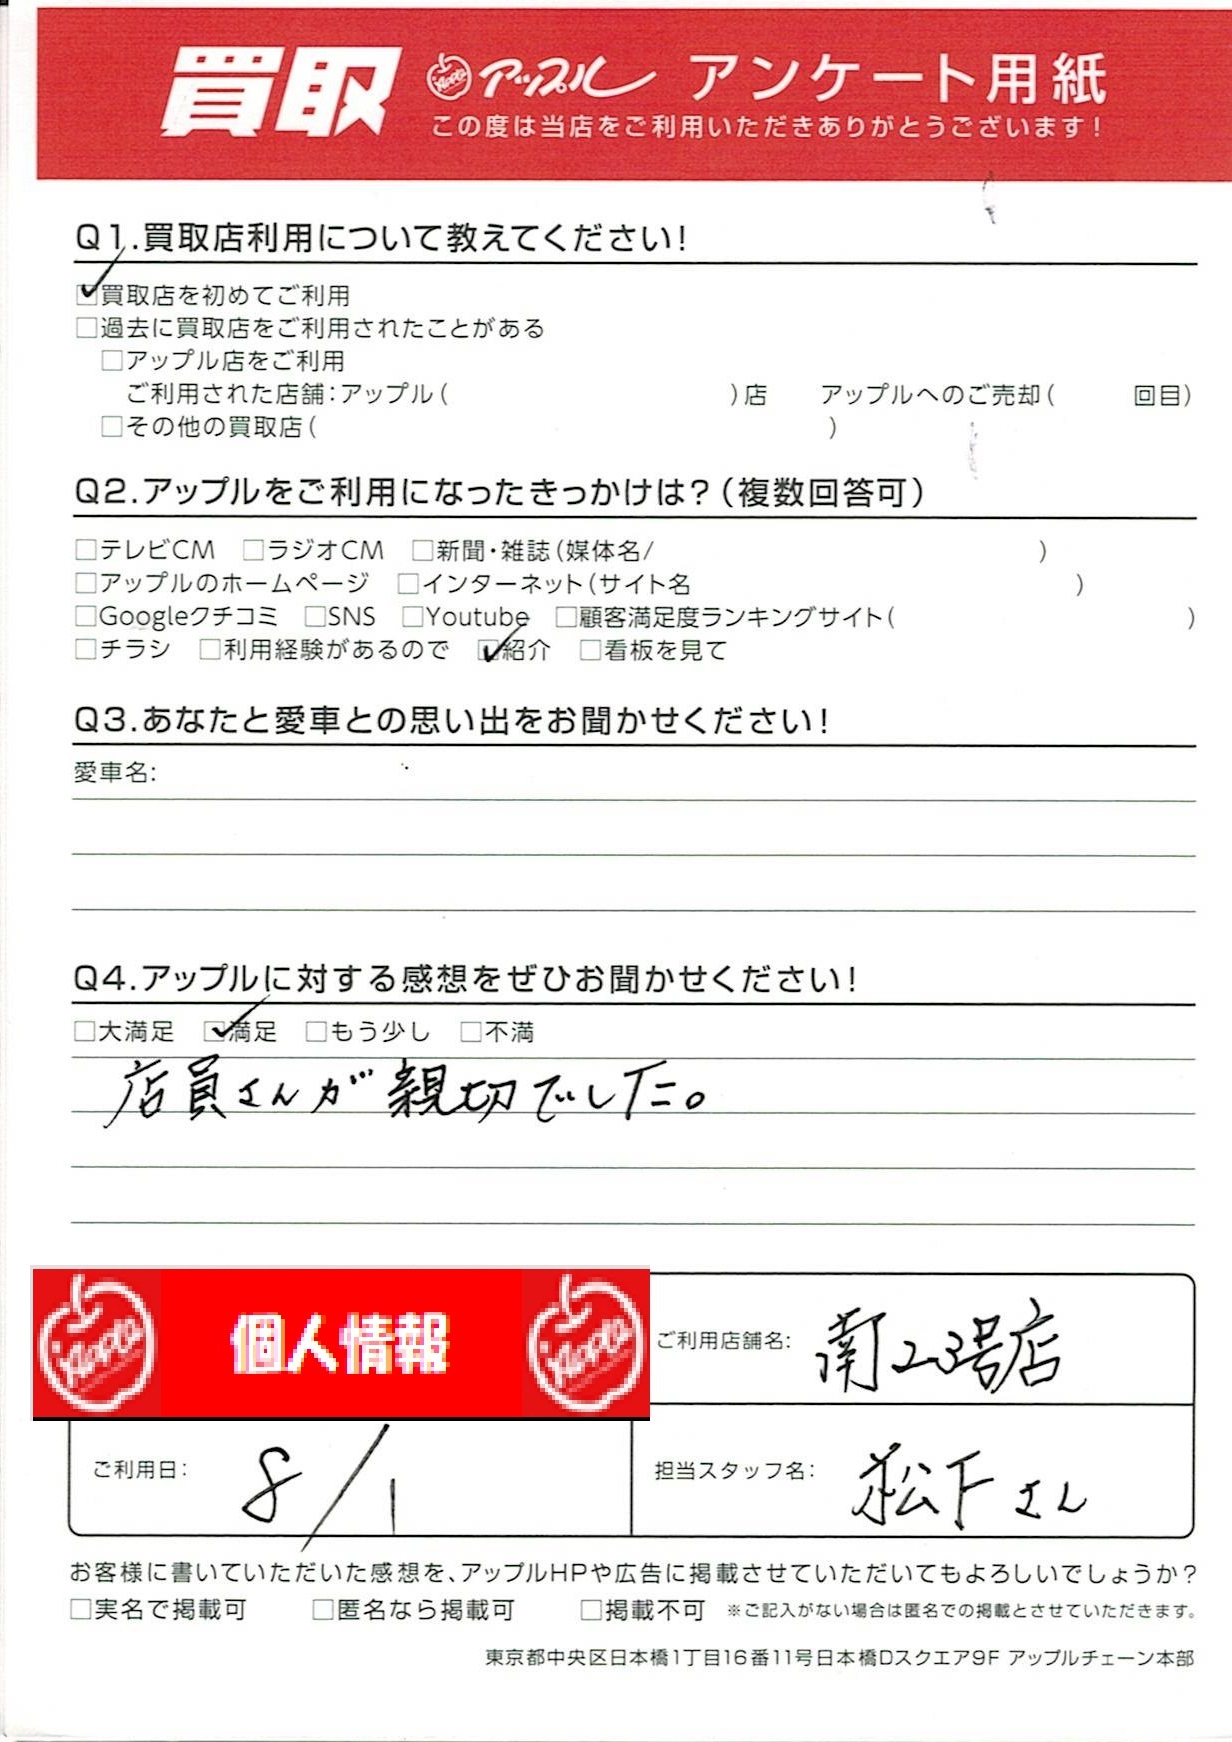 買取 Apple アップル アンケート用紙
この度は当店をご利用いただきありがとうございます!
Q1.買取店利用について教えてください!
☑買取店を初めてご利用
□過去に買取店をご利用されたことがある
□アップル店をご利用
ご利用された店舗:アップル( )店 アップルへのご売却( 回目)
□その他の買取店( )
Q2.アップルをご利用になったきっかけは?(複数回答可)
□テレビCM □ラジオCM □新聞・雑誌(媒体名/ )
□アップルのホームページ □インターネット(サイト名 )
□Googleクチコミ □SNS □Youtube □顧客満足度ランキングサイト( )
□チラシ □利用経験があるので ☑紹介 □看板を見て
Q3.あなたと愛車との思い出をお聞かせください!
愛車名:
Q4.アップルに対する感想をぜひお聞かせください!
□大満足 ☑満足 □もう少し □不満
店員さんが親切でした。
Apple 個人情報 Apple
ご利用店舗名: 南23号店
ご利用日: 8/1
担当スタッフ名: 松下さん
お客様に書いていただいた感想を、アップルHPや広告に掲載させていただいてもよろしいでしょうか?
□実名で掲載可 □匿名なら掲載可 □掲載不可 ※ご記入がない場合は匿名での掲載とさせていただきます。
東京都中央区日本橋1丁目16番11号日本橋Dスクエア9F アップルチェーン本部